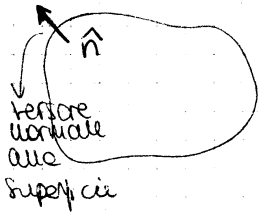 n̂
versore
normale
alla
superficie